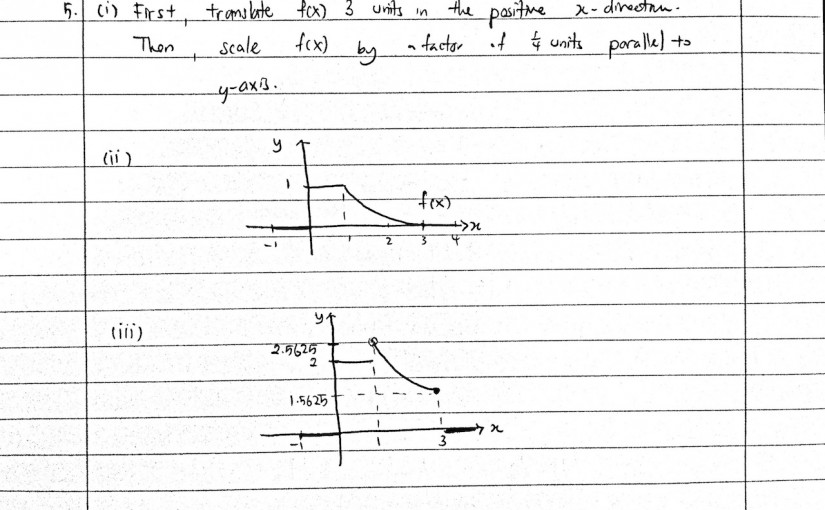 5. (i) First, translate f(x) 3 units in the positive x-direction.
Then, scale f(x) by a factor of 1/4 units parallel to
y-axis.
(ii)
y
1
f(x)
-1 1 2 3 4 x
(iii)
y
2.5625
2
1.5625
-1 1 3 x